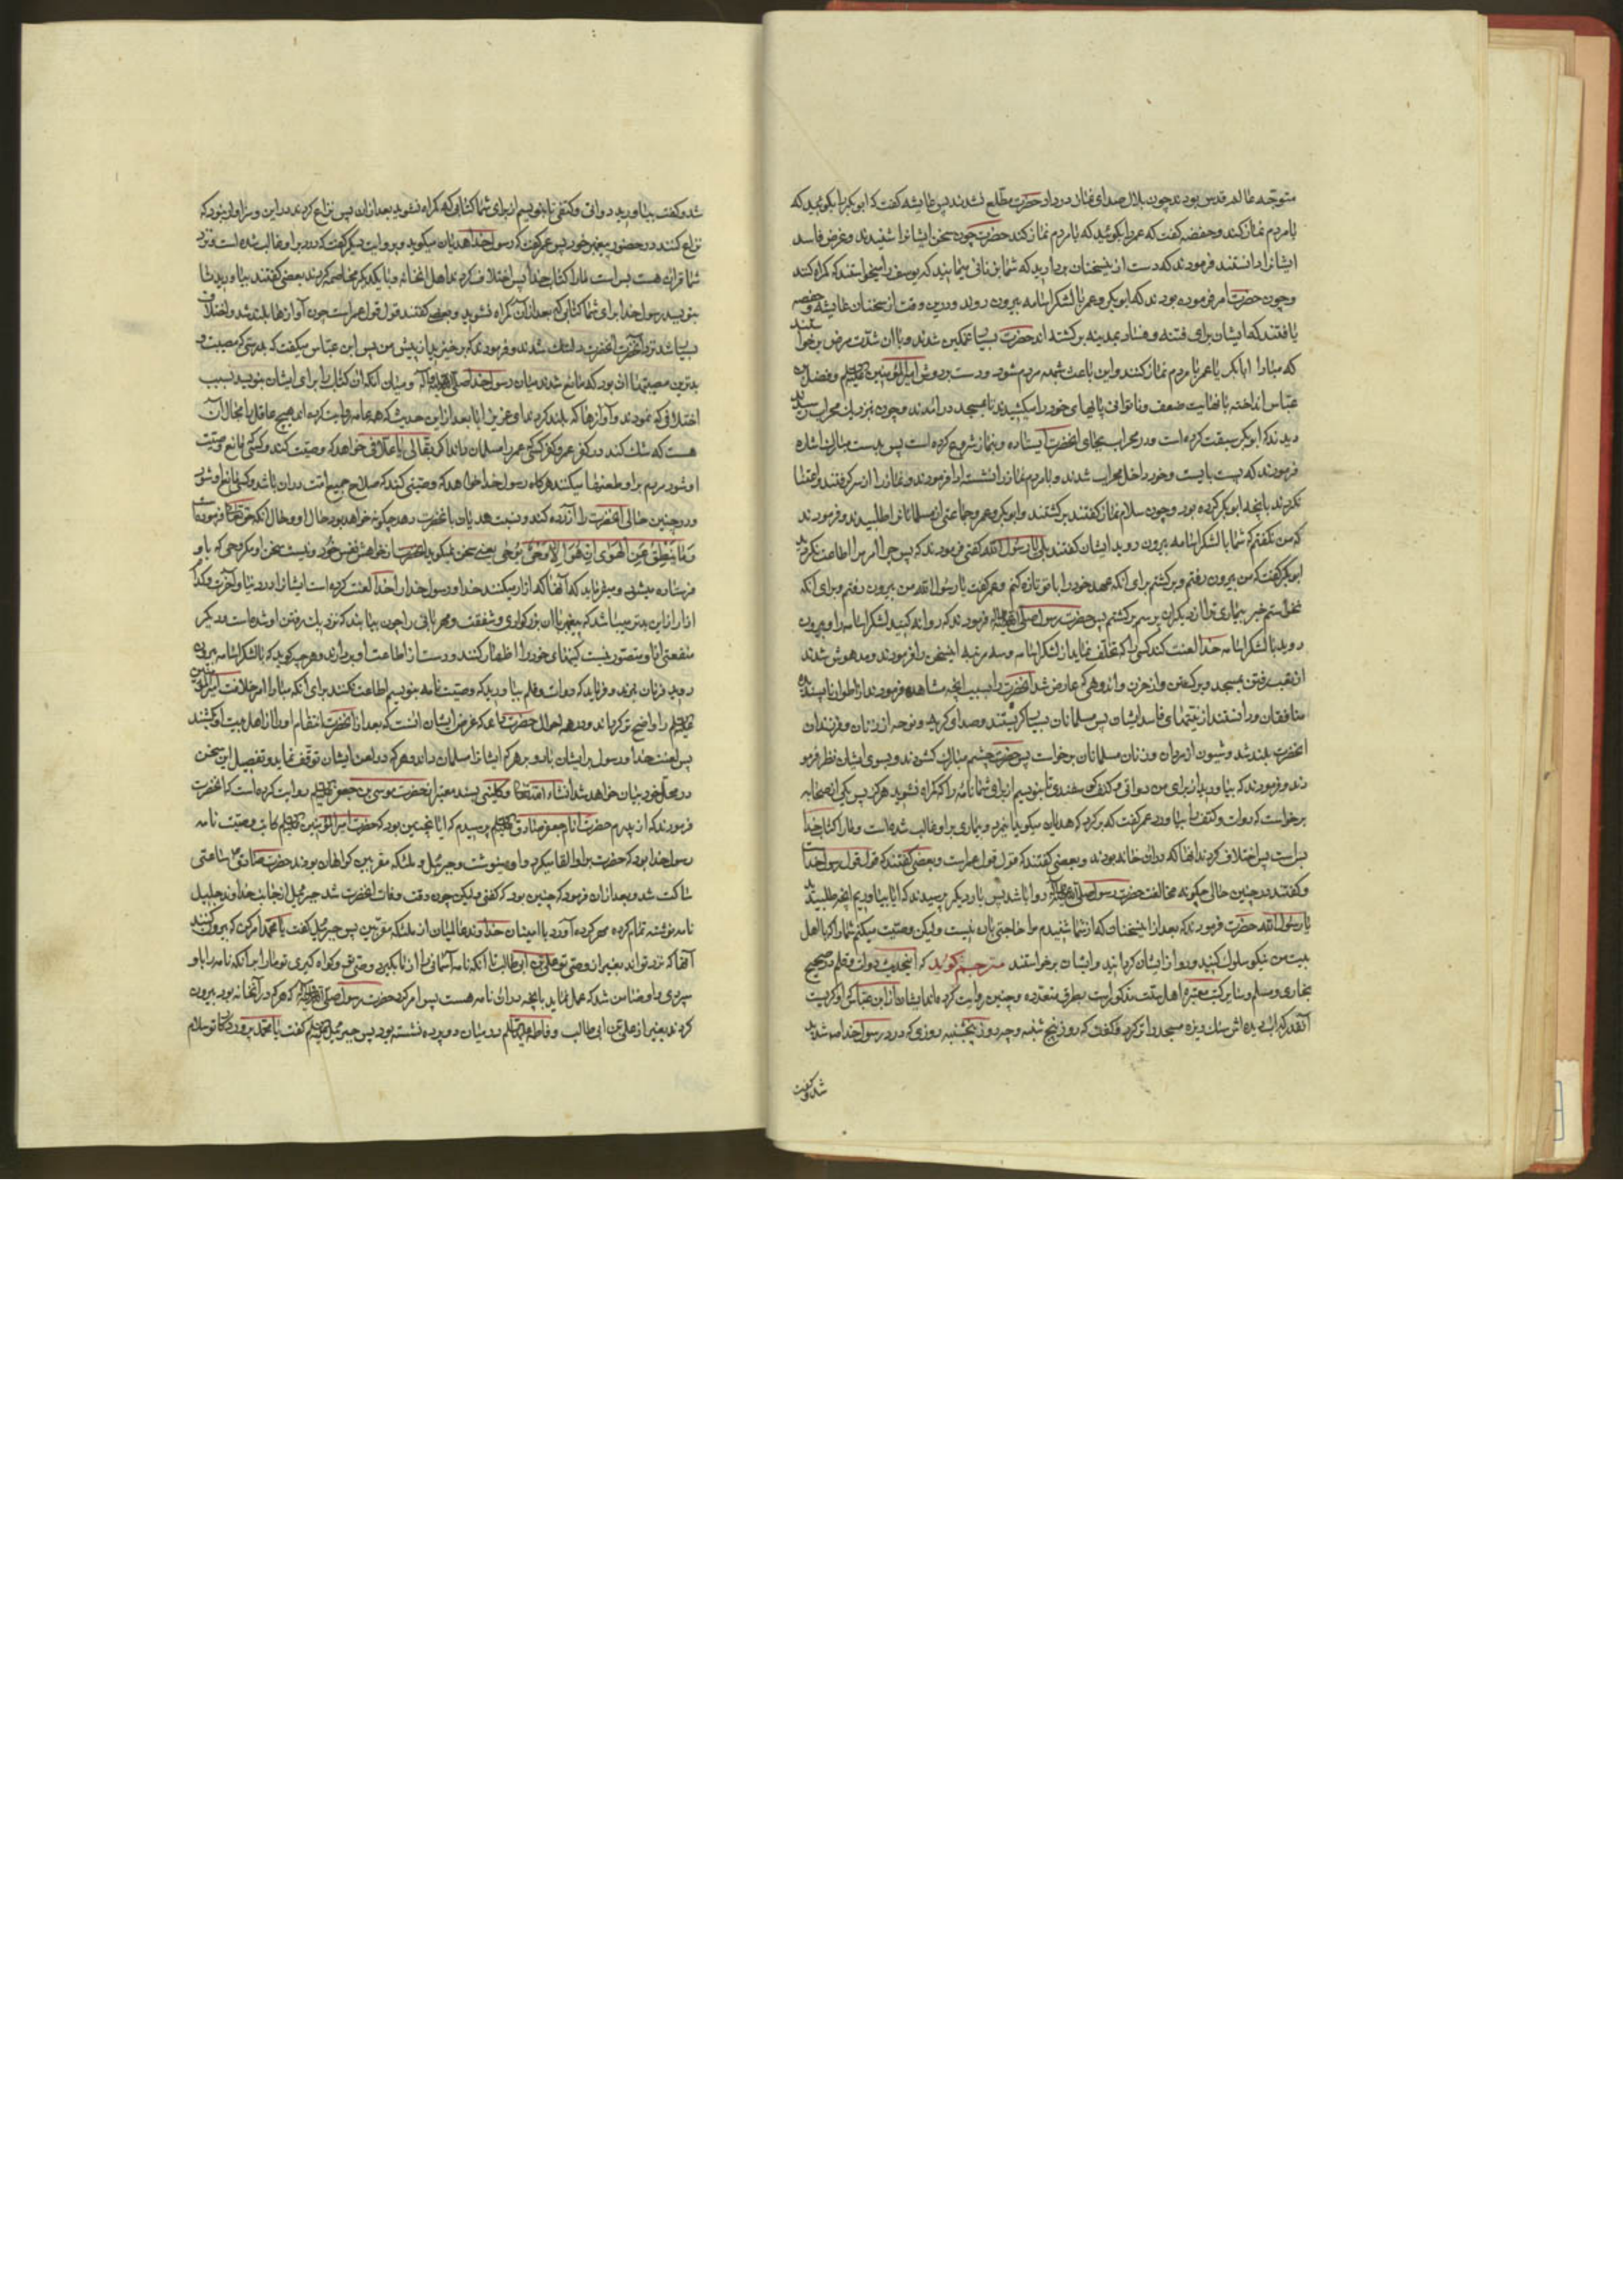 متوجه عالم قدس بودند چون بلال صدای نماز در داد حضرت مطلع نشدند پس عایشه گفت که ابوبکر را بگوئید که
با مردم نماز کند و حفصه گفت که عمر را بگوئید که با مردم نماز کند حضرت چون سخن ایشانرا شنیدند و غرض فاسد
ایشانرا دانستند فرمودند که دست از این سخنان بردارید که شما بزنانی میمانید که یوسف را میخواستند که گمراه کنند
و چون حضرت امر فرموده بودند که ابوبکر و عمر با لشکر اسامه بیرون روند و درین وقت از سخنان عایشه و حفصه
یافتند که ایشان برای فتنه و فساد بمدینه برگشته اند حضرت بسیار غمگین شدند و با ان شدت مرض برخواستند
که مبادا ابابکر یا عمر با مردم نماز کنند و این باعث شبهه مردم شود و دست بر دوش امیرالمؤمنین علیه السلام و فضل بن
عباس انداخته با نهایت ضعف و ناتوانی پاهای خود را میکشیدند تا بمسجد درآمدند و چون نزدیک محراب رسیدند
دیدند که ابوبکر سبقت کرده است و در محراب بجای انحضرت ایستاده و بنماز شروع کرده است پس بدست مبارک اشاره
فرمودند که پس بایست و خود داخل محراب شدند و با مردم نماز را نشسته ادا فرمودند و نماز را از سر گرفتند و اعتنا
نکردند بانچه ابوبکر کرده بود و چون سلام نماز گفتند برگشتند و ابوبکر و عمر و جماعتی از مسلمانان را طلبیدند و فرمودند
که من نگفتم که شما با لشکر اسامه بیرون روید ایشان گفتند بلی یا رسول الله گفتی فرمودند که پس چرا امر مرا اطاعت نکردید
ابوبکر گفت که من بیرون رفتم و برگشتم برای آنکه عهد خود را با تو تازه کنم و عمر گفت یا رسول الله من بیرون نرفتم برای انکه
نخواستم خبر بیماری ترا از دیگران بپرسم پس حضرت رسول صلی الله علیه و اله فرمودند که روانه کنید لشکر اسامه را و بیرون
روید با لشکر اسامه خدا لعنت کند کسی را که تخلف نماید از لشکر اسامه و سه مرتبه این سخن را فرمودند و مدهوش شدند
از تعب رفتن بمسجد و برگشتن و از حزن و اندوهی که عارض شد انحضرت را بسبب انچه مشاهده فرمودند از اطوار ناپسندیده
منافقان و دانستند از نیتهای فاسد ایشان پس مسلمانان بسیار گریستند و صدای گریه و نوحه از زنان و فرزندان
انحضرت بلند شد و شیون از مردان و زنان مسلمانان برخواست پس حضرت چشم مبارک گشودند و بسوی ایشان نظر فرمو
دند و فرمودند که بیاورید از برای من دواتی و کتف گوسفندی تا بنویسم از برای شما نامه را که گمراه نشوید هرگز پس یکی از صحابه
برخواست که دوات و کتف را بیاورد عمر گفت که برگرد که هذیان میگوید این مرد و بیماری بر او غالب شده است و ما را کتاب خدا
بس است پس اختلاف کردند انها که در ان خانه بودند و بعضی گفتند که قول قول عمر است و بعضی گفتند که قول قول رسول خداست
و گفتند در چنین حالی چگونه مخالفت حضرت رسول صلی الله علیه و اله روا باشد پس بار دیگر پرسیدند که ایا بیاوریم انچه طلبیدید
یا رسول الله حضرت فرمودند که بعد از این سخنان که از شما شنیدم مرا حاجتی بان نیست و لیکن وصیت میکنم شما را که با اهل
بیت من نیکو سلوک کنید و رو از ایشان گردانید و ایشان برخواستند مترجم گوید که این حدیث دوات و قلم در صحیح
بخاری و مسلم و سایر کتب معتبره اهل سنت مذکور است بطرق متعدده و چنین روایت کرده اند ایشان از ابن عباس که او گریست
آنقدر که اب دیده اش سنگ ریزه مسجد را تر کرد و گفت که روز پنجشنبه و چه روز پنجشنبه روزی که درد رسول خدا صعب شدید
شد و گفت
شد و گفت بیاورید دواتی و کتفی تا بنویسم از برای شما کتابی که گمراه نشوید بعد از ان پس نزاع کردند در این و سزاوار نبود که
نزاع کنند در حضور پیغمبر خود پس عمر گفت که رسول خدا هذیان میگوید و بروایت دیگر گفت که درد بر او غالب شده است و نزد
شما قران هست بس است ما را کتاب خدا پس اختلاف کردند اهل انخانه و با یکدیگر مخاصمه کردند بعضی گفتند بیاورید تا
بنویسد رسول خدا برای شما کتابی که بعد از ان گمراه نشوید و بعضی گفتند قول قول عمر است چون آوازها بلند شد و اختلاف
بسیار شد نزد انحضرت انحضرت دلتنگ شدند و فرمود که برخیزید از پیش من پس ابن عباس میگفت که بدرستی که مصیبت و
بدترین مصیبتها ان بود که مانع شدند میان رسول خدا صلی الله علیه و آله و میان آنکه ان کتاب را برای ایشان بنویسد بسبب
اختلافی که نمودند و آوازها که بلند کردند ای عزیز ایا بعد از این حدیث که همه عامه روایت کرده اند هیچ عاقل را مجال آن
هست که شک کند در کفر عمر و کفر کسی که عمر را مسلمان داند اگر بقالی یا علافی خواهد که وصیت کند و کسی مانع وصیت
او شود مردم بر او طعنها میکنند هرگاه رسول خدا خواهد که وصیتی کند که صلاح جمیع امت در ان باشد و کسی مانع او شود
و در چنین حالی انحضرت را آزرده کند و نسبت هذیان بانحضرت دهد چگونه خواهد بود حال او و حال آنکه حق تعالی فرموده است
وَمَا يَنْطِقُ عَنِ الْهَوَى اِنْ هُوَ اِلَّا وَحْيٌ يُوحَى یعنی سخن نمیگوید انحضرت از خواهش نفس خود و نیست سخن او مگر وحی که باو
فرستاده میشود و میفرماید که آنها که ازار میکنند خدا و رسول خدا را خدا لعنت کرده است ایشانرا در دنیا و آخرت و کدام
ازار از این بدتر میباشد که پیغمبر با ان بزرگواری و شفقت و مهربانی را چون بیابند که نزدیک رفتن او شده است و دیگر
منفعتی از او متصور نیست کینهای خود را اظهار کنند و دست از اطاعت او بردارند و هر چند گوید که با لشکر اسامه بیرون
روید فرمان نبرند و فرماید که دوات و قلم بیاورید که وصیت نامه بنویسم اطاعت نکنند برای آنکه مبادا امر خلافت امیرالمؤمنین
علیه السلام را واضح تر گرداند و در همه احوال حضرت داند که غرض ایشان انست که بعد از انحضرت انتقام او را از اهل بیت او کشند
پس لعنت خدا و رسول بر ایشان باد و بر هر که ایشانرا مسلمان داند و هر که در لعن ایشان توقف نماید و تفصیل این سخن
در محل خود بیان خواهد شد انشاء الله تعالی و کلینی بسند معتبر از حضرت موسی بن جعفر علیه السلام روایت کرده است که انحضرت
فرمودند که از پدرم حضرت امام جعفر صادق علیه السلام پرسیدم که ایا نچنین بود که حضرت امیرالمؤمنین علیه السلام کاتب وصیت نامه
رسول خدا بود که حضرت بر او القا میکرد و او مینوشت و جبرئیل و ملئکه مقربین گواهان بودند حضرت صادق ساعتی
ساکت شد و بعد از ان فرمود که چنین بود که گفتی ولیکن چون وقت وفات انحضرت شد جبرئیل از جانب خداوند جلیل
نامه نوشته تمام کرده مهر کرده آورد با امینان خداوند عالمیان از ملئکه مقربین پس جبرئیل گفت یا محمد امر کن که بیرون کنند
آنها که نزد تواند بغیر از وصی تو علی بن ابی طالب تا آنکه نامه آسمانی را از ما بگیرد وصی تو و گواه گیری تو ما را بر انکه نامه را باو
سپردی و او ضامن شد که عمل نماید بانچه در ان نامه هست پس امر کرد حضرت رسول صلی الله علیه و اله که هر که در آنخانه بود بیرون
کردند بغیر از علی بن ابی طالب و فاطمه علیها السلام در میان در و پرده نشسته بود پس جبرئیل علیه السلام گفت یا محمد پروردگارت تو سلام